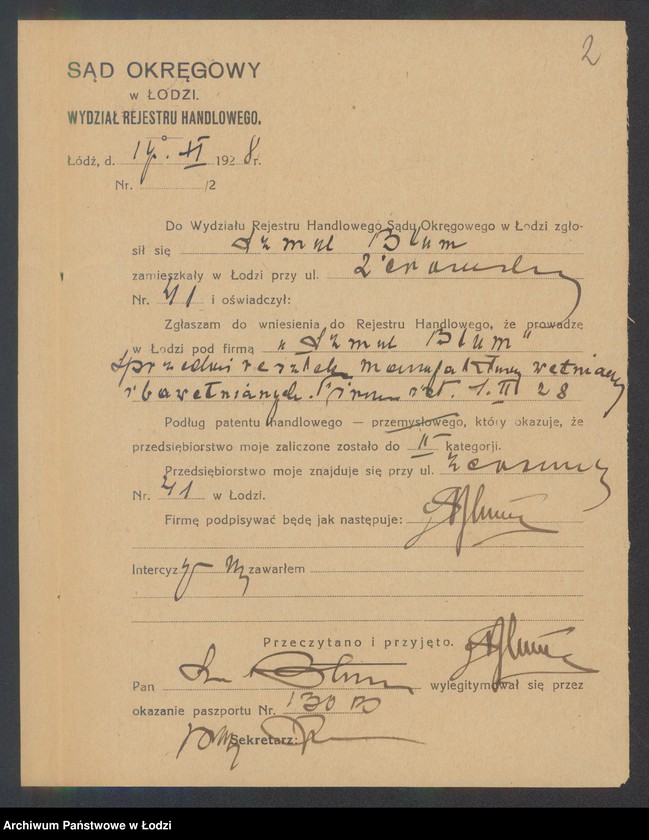 2
SĄD OKRĘGOWY
w ŁODZI.
WYDZIAŁ REJESTRU HANDLOWEGO.
Łódź, d. XI 1928 r.
Nr. /2
Do Wydziału Rejestru Handlowego Sądu Okręgowego w Łodzi zgło-
sił się Szmul Blum
zamieszkały w Łodzi przy ul.
Nr. 41 i oświadczył:
Zgłaszam do wniesienia do Rejestru Handlowego, że prowadzę
w Łodzi pod firmą „Szmul Blum"
sprzedaż resztek manufaktury wełnianej
i bawełnianych. Firma 28
Podług patentu handlowego — przemysłowego, który okazuję, że
przedsiębiorstwo moje zaliczone zostało do II kategorji.
Przedsiębiorstwo moje znajduje się przy ul.
Nr. 41 w Łodzi.
Firmę podpisywać będę jak następuje:
Intercyzy zawarłem
Przeczytano i przyjęto.
Pan Blum wylegitymował się przez
okazanie paszportu Nr. 130
Sekretarz:
Archiwum Państwowe w Łodzi